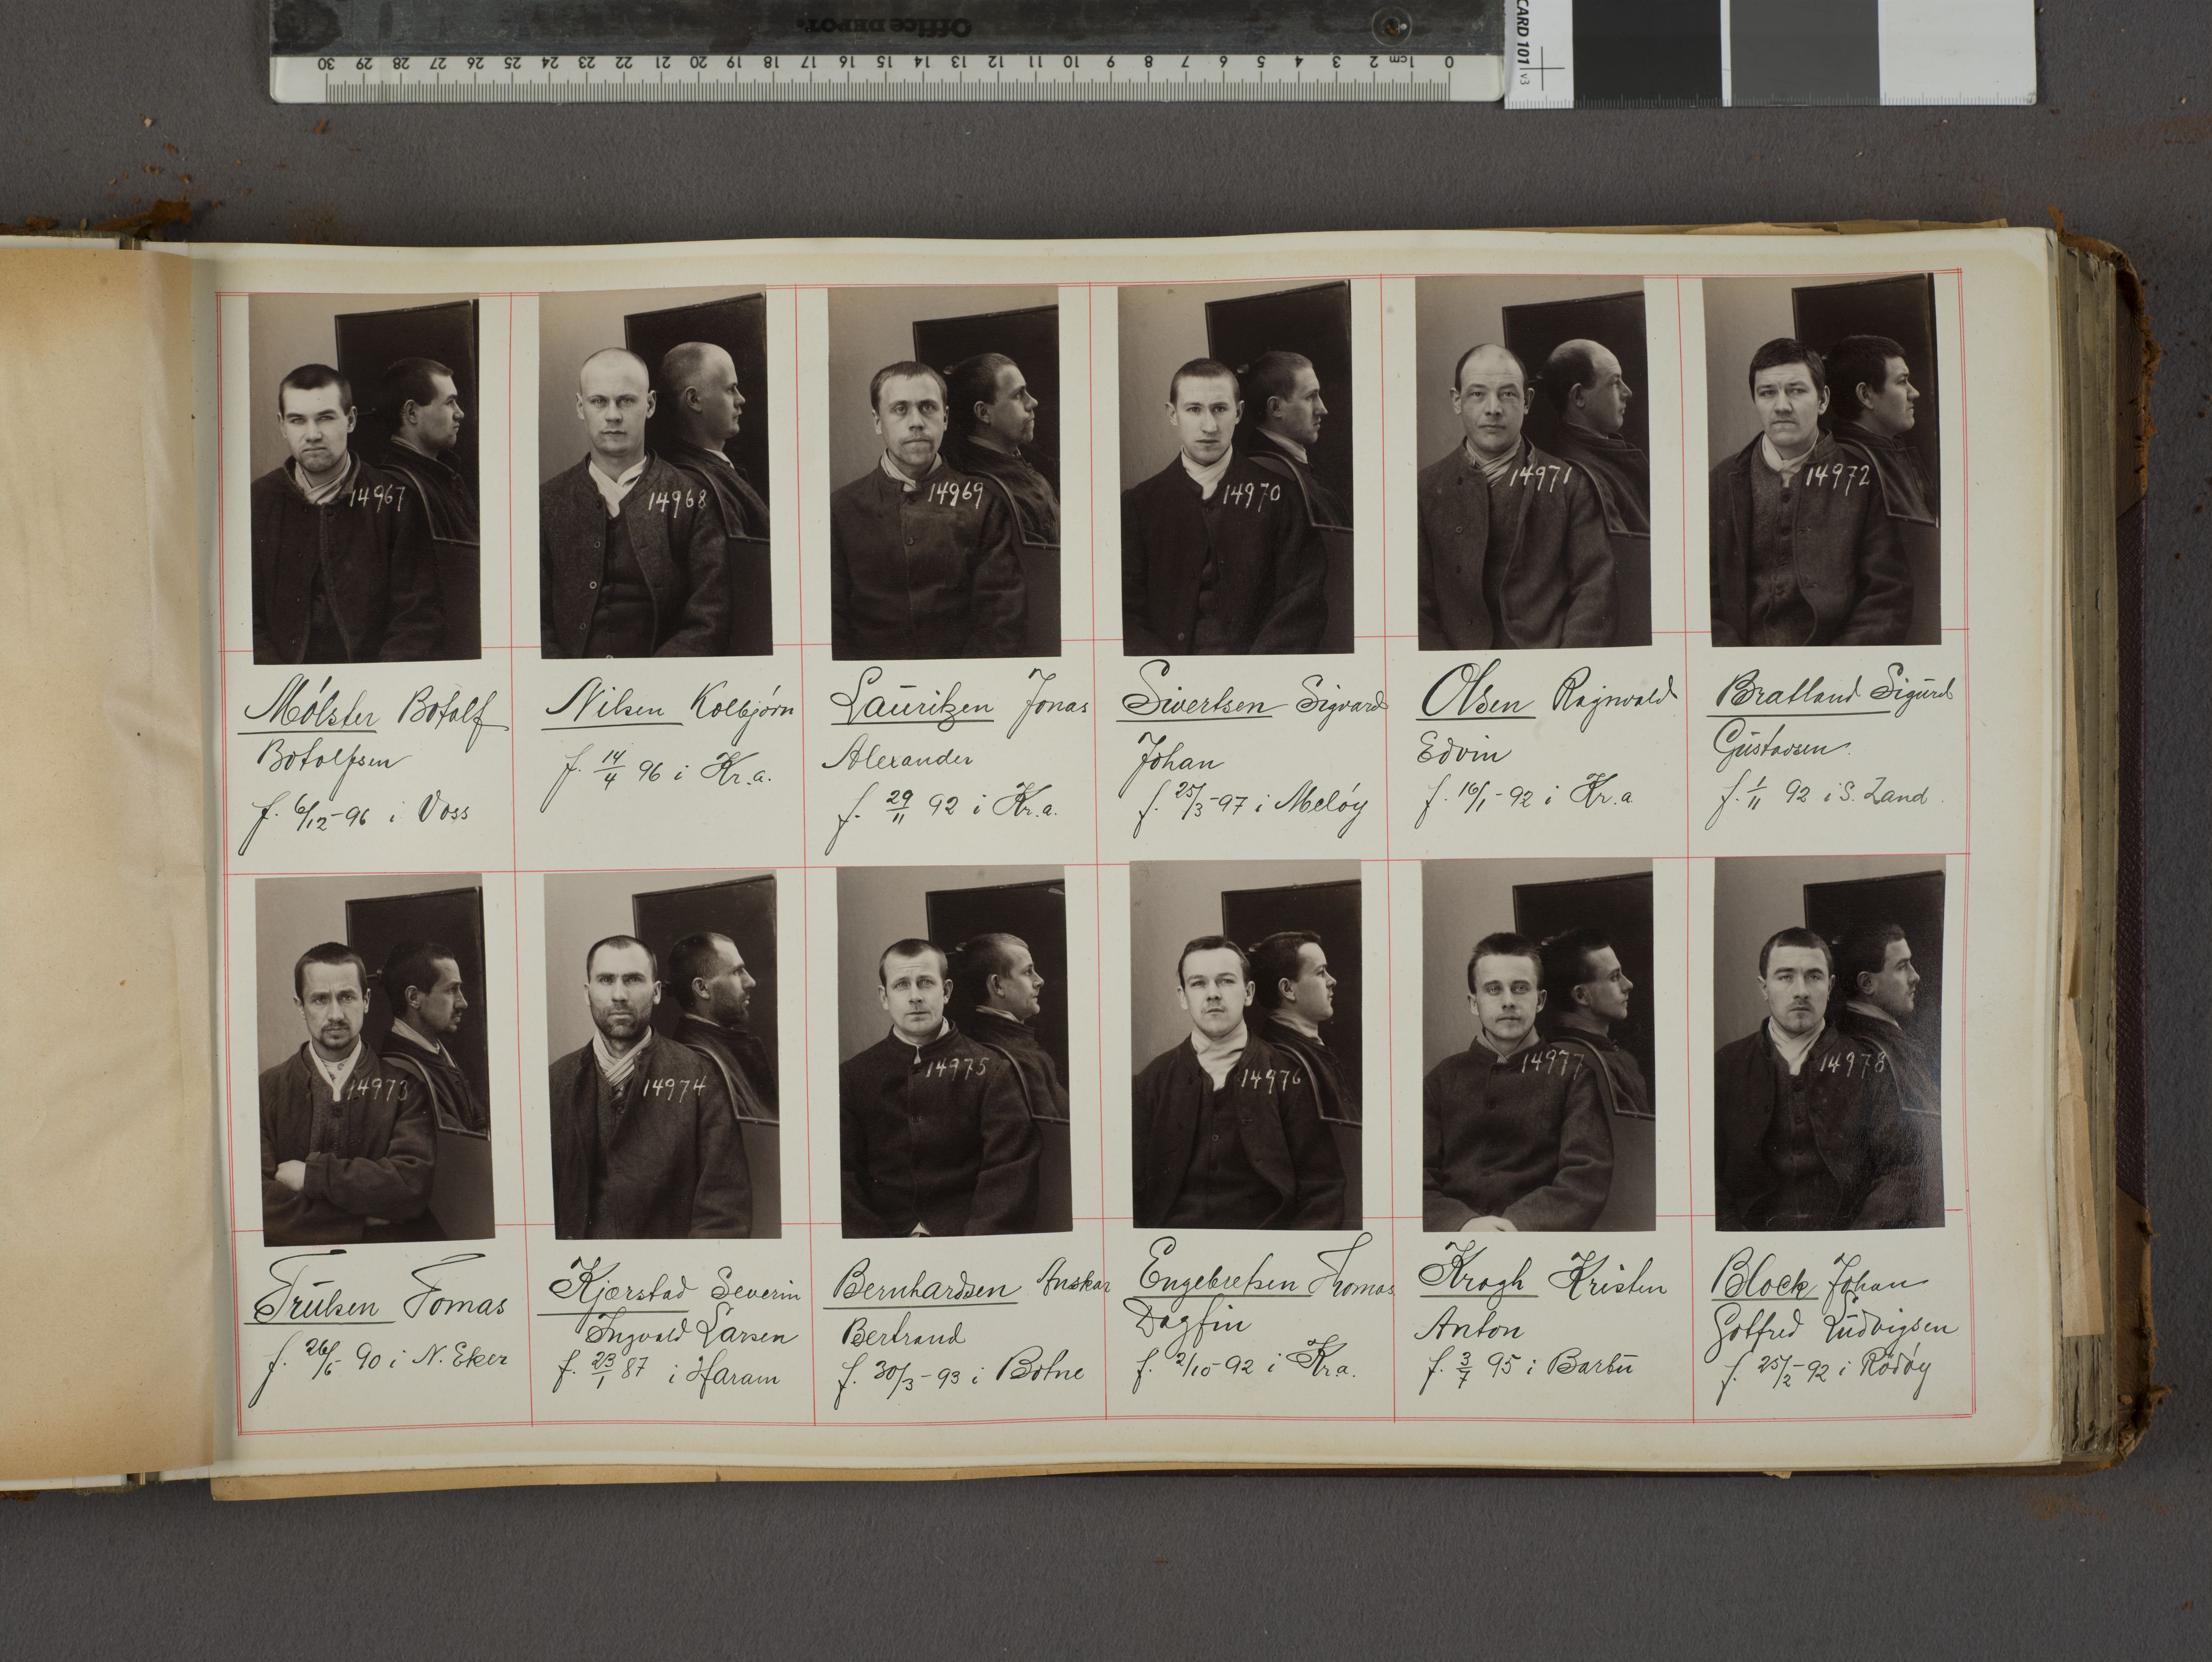 Office DEPOT.
0 1cm 2 3 4 5 6 7 8 9 10 11 12 13 14 15 16 17 18 19 20 21 22 23 24 25 26 27 28 29 30
CARD 101 v3
14967
14968
14969
14970
14971
14972
Mólster Botolf
Botolfsen
f. 6/12-96 i Voss
Nilsen Kolbjórn
f. 14/4 96 i Kr.a.
Lauritzen Jonas
Alexander
f. 29/11 92 i Kr.a.
Sivertsen Sigvard
Johan
f. 25/3-97 i Melóy
Olsen Ragnvald
Edvin
f. 16/1-92 i Kr.a
Bratland Sigurd
Gustavsen.
f. 1/11 92 i S. Land.
14973
14974
14975
14976
14977
14978
Trulsen Tomas
f. 26/6-90 i N. Eker
Kjærstad Severin
Ingvald Larsen
f. 23/1 87 i Haram
Bernhardsen Anskar
Bertrand
f. 30/3-93 i Botne
Engebretsen Thomas
Dagfin
f. 2/10-92 i Kr.a.
Krogh Kristen
Anton
f. 3/7 95 i Barbu
Block Johan
Gotfred Ludvigsen
f. 25/2-92 i Rödóy